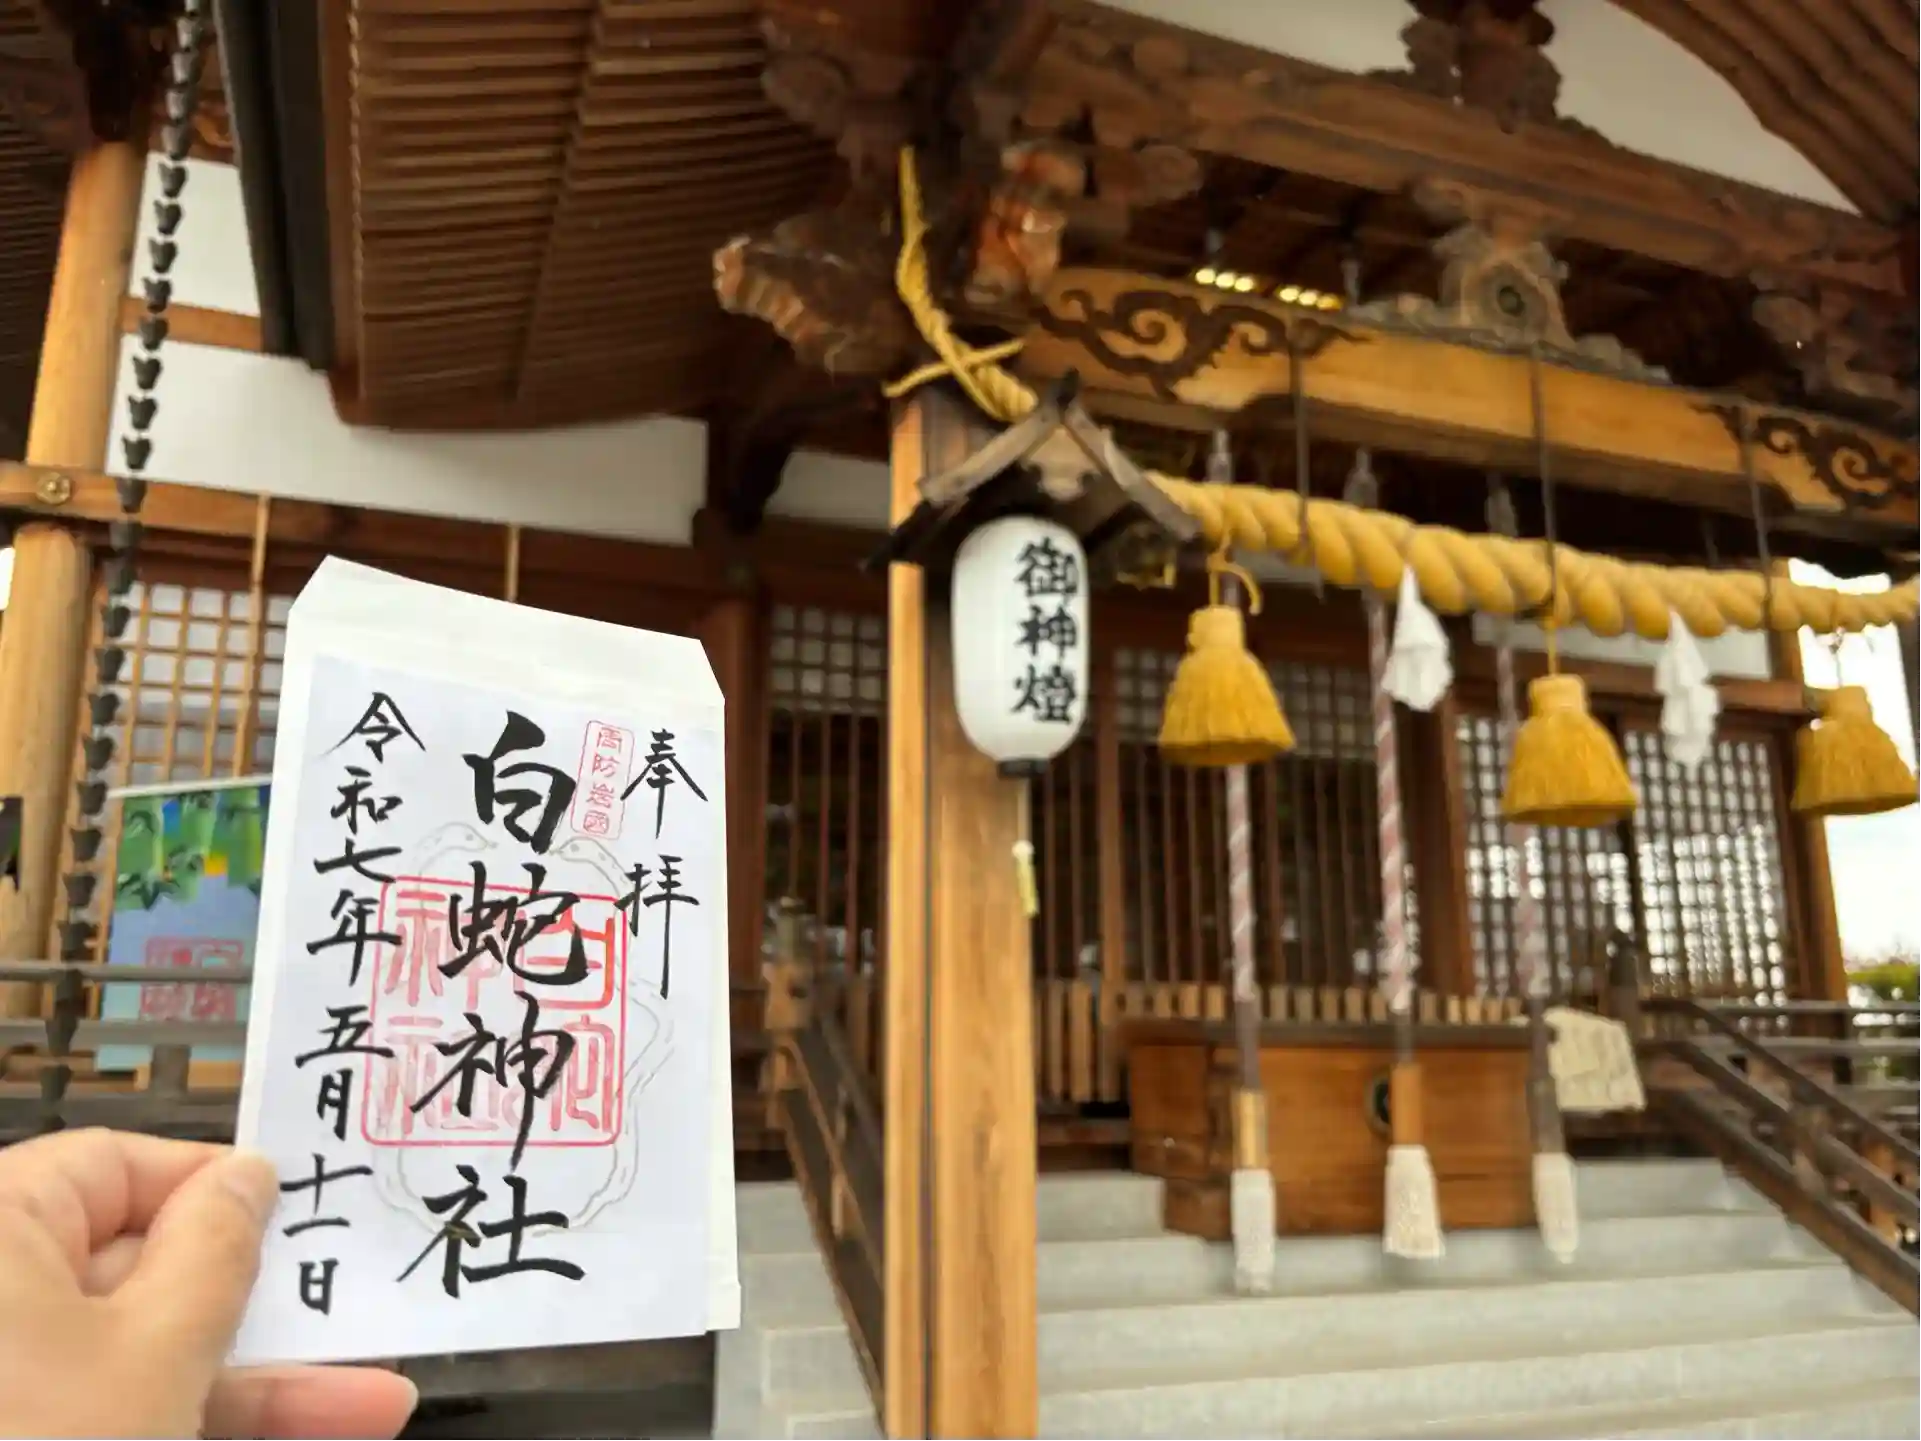 奉拝
周防岩国
白蛇神社
令和七年五月十一日
御神燈